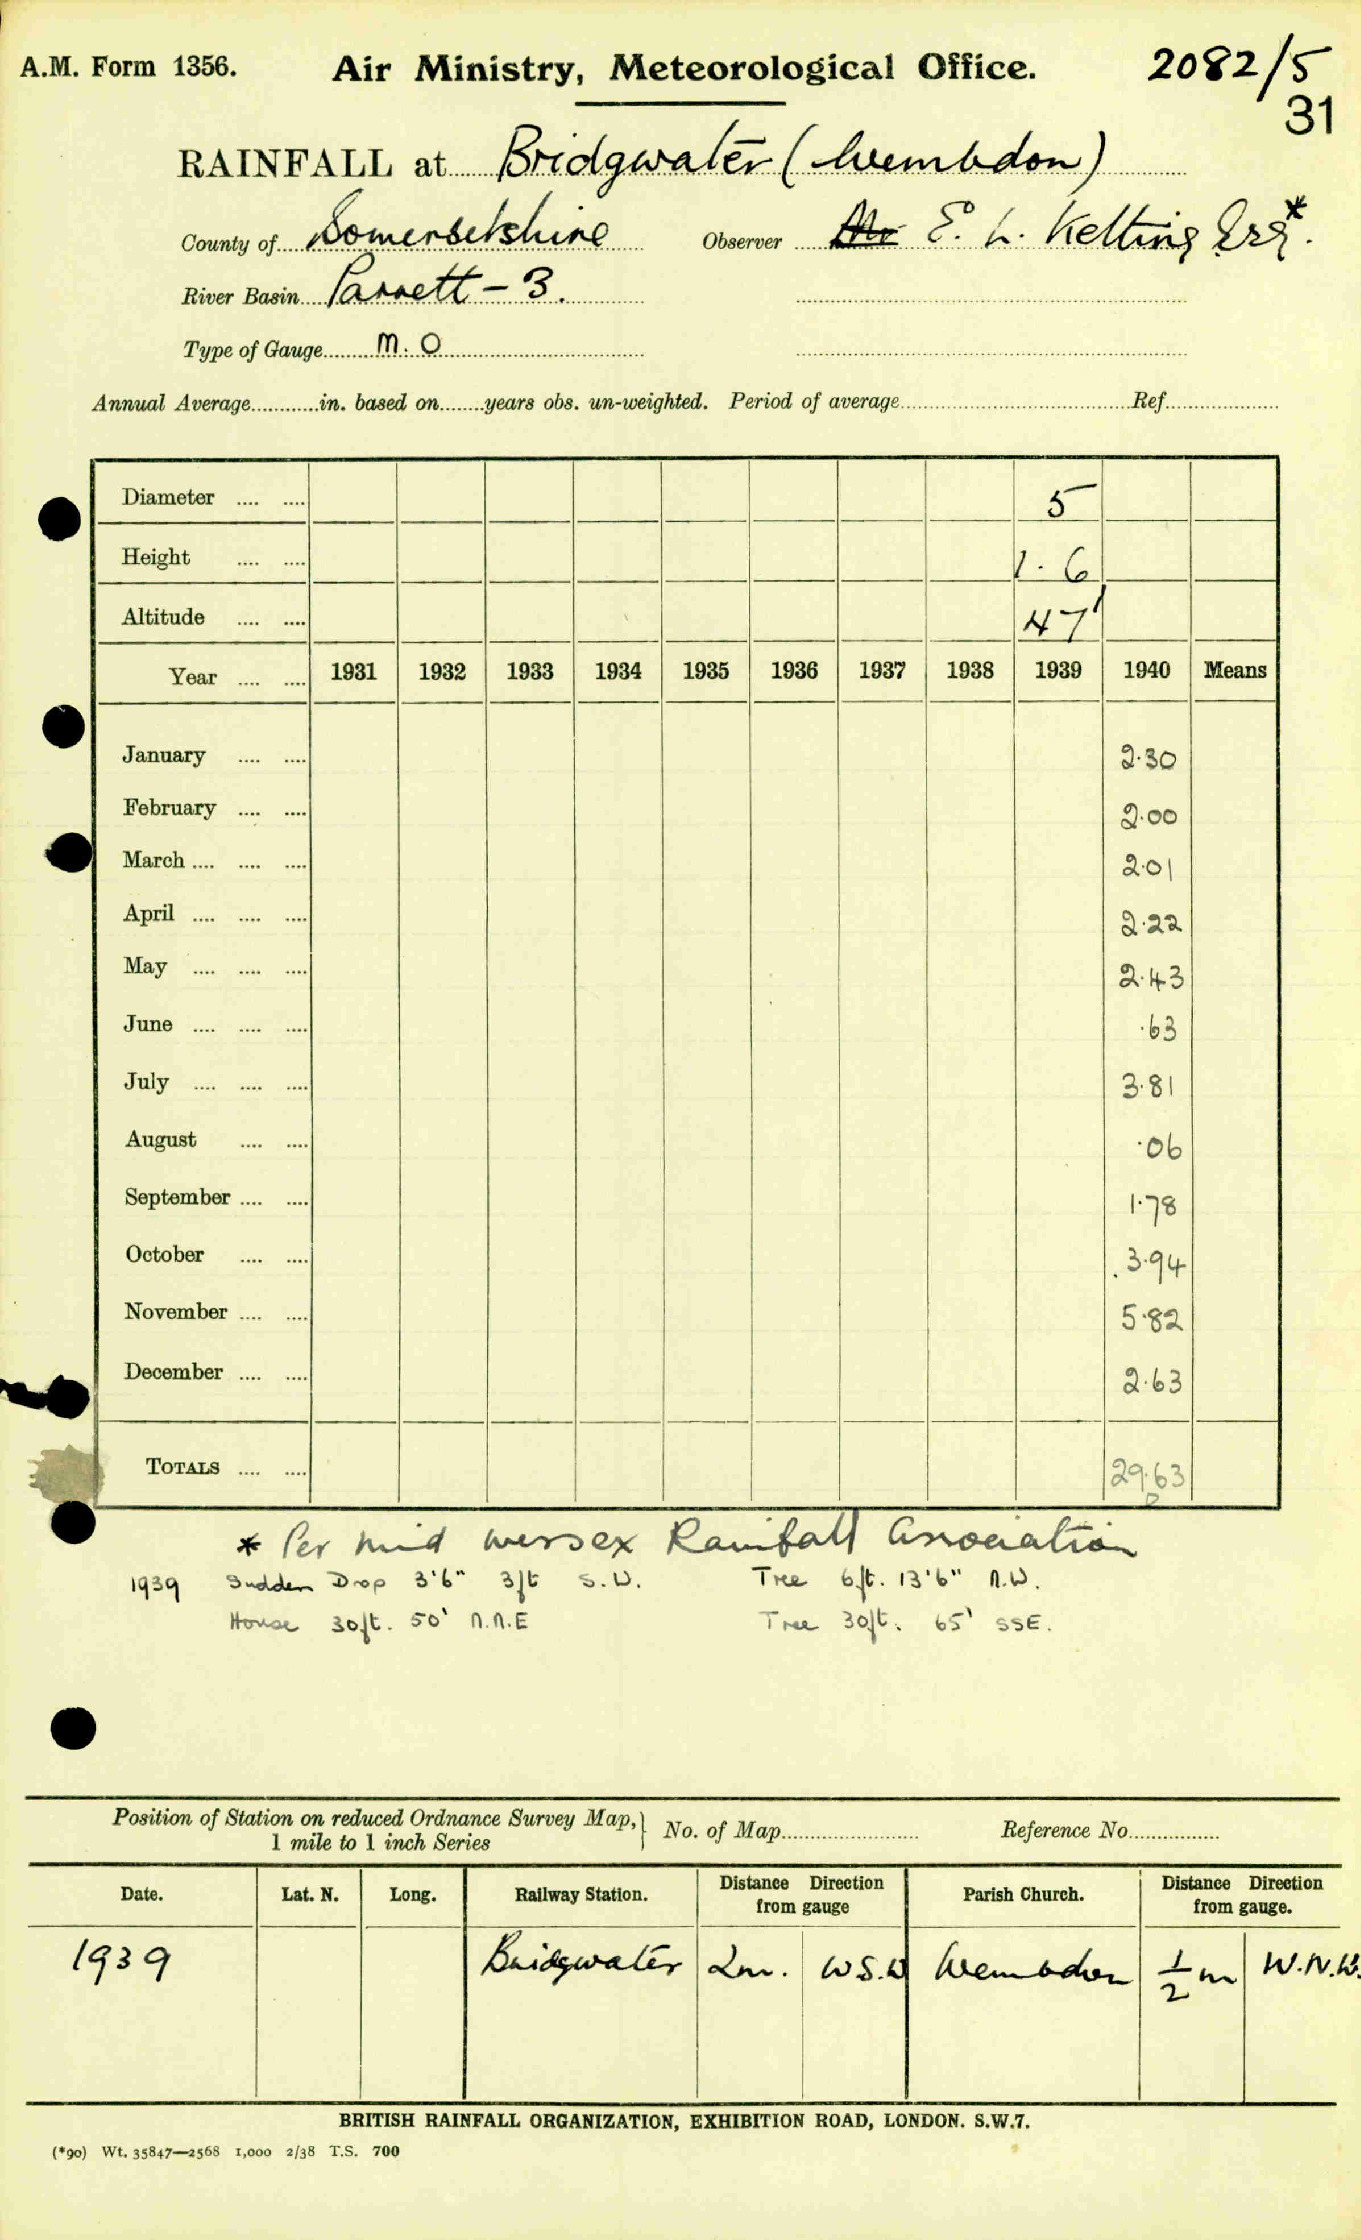 A.M. Form 1356. Air Ministry, Meteorological Office. 2082/5
31
RAINFALL at Bridgwater (Wembdon)
County of Somersetshire Observer Mr E. L. Kelting Esq*.
River Basin Parrett - 3.
Type of Gauge M.O
Annual Average............in. based on........years obs. un-weighted. Period of average....................Ref....................
Diameter .... .... 5
Height .... .... 1. 6
Altitude .... .... 47'
Year .... .... 1931 1932 1933 1934 1935 1936 1937 1938 1939 1940 Means
January .... .... 2.30
February .... .... 2.00
March .... .... .... 2.01
April .... .... .... 2.22
May .... .... .... 2.43
June .... .... .... .63
July .... .... .... 3.81
August .... .... .06
September .... .... 1.78
October .... .... 3.94
November .... .... 5.82
December .... .... 2.63
TOTALS .... .... 29.63
* Per Mid Wessex Rainfall Association
1939 Sudden Drop 3'6" 3ft S.W. Tree 6ft. 13'6" N.W.
House 30ft. 50' N.N.E Tree 30ft. 65' SSE.
Position of Station on reduced Ordnance Survey Map, } No. of Map........................ Reference No................
1 mile to 1 inch Series
Date. Lat. N. Long. Railway Station. Distance Direction from gauge Parish Church. Distance Direction from gauge.
1939 Bridgwater 2m. W.S.W Wembdon 1/2 m W.N.W.
BRITISH RAINFALL ORGANIZATION, EXHIBITION ROAD, LONDON. S.W.7.
(*90) Wt. 35847—2568 1,000 2/38 T.S. 700